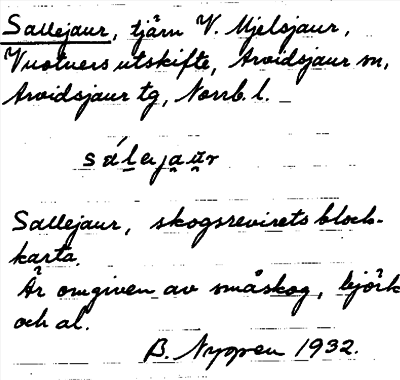 Sallejaur, tjärn V. Mjelsjaur,
Vuotners utskifte, Arvidsjaur sn,
Arvidsjaur tg, Norrb. l.
sálejau̯r
Sallejaur, skogsrevirets block-
karta.
Är omgiven av småskog, björk
och al.
B. Nyppen 1932.